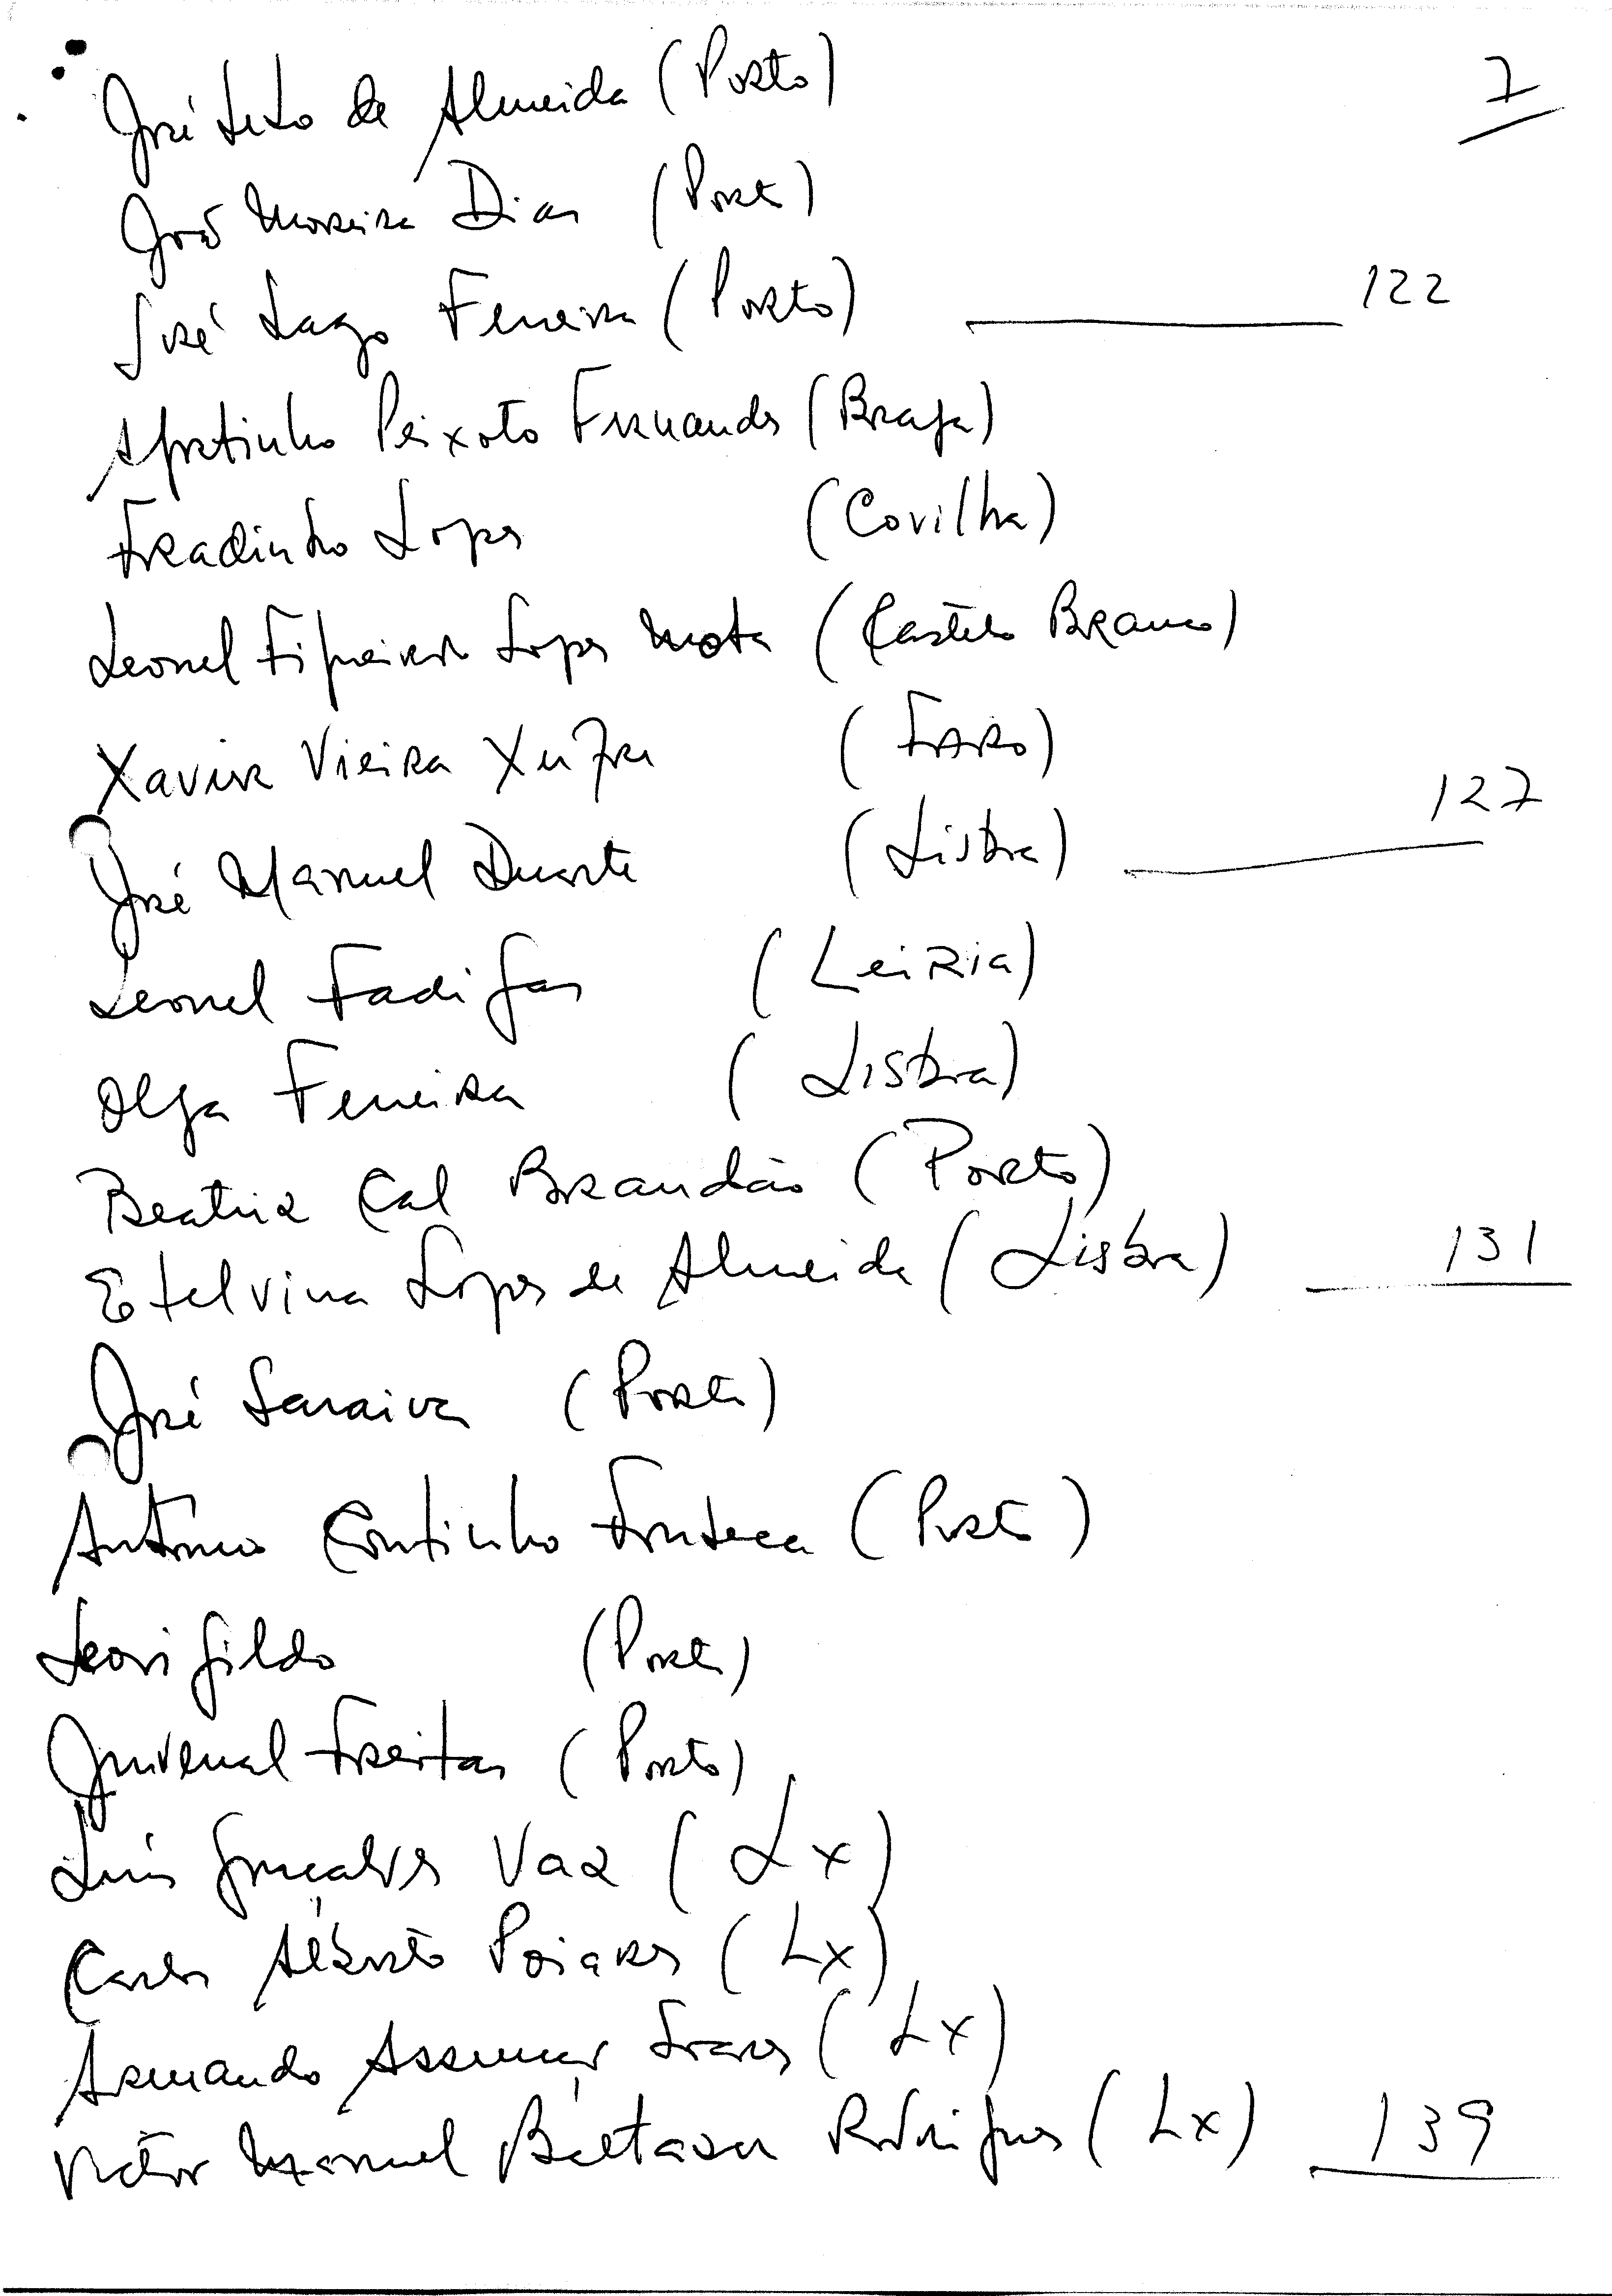 7
José Leto de Almeida (Porto)
João Moreira Dias (Porto)
José Lago Ferreira (Porto) 122
Agostinho Peixoto Fernandes (Braga)
Fradinho Lopes (Covilha)
Leonel Figueiredo Lopes Mota (Castelo Branco)
Xavier Vieira Xufre (FARO)
José Manuel Duarte (Lisboa) 127
Leonel Fadigas (Leiria)
Olga Ferreira (Lisboa)
Beatriz Cal Brandão (Porto)
Etelvina Lopes de Almeida (Lisboa) 131
José Saraiva (Porto)
António Coutinho Fonseca (Porto)
Leovigildo (Porto)
Juvenal Freitas (Porto)
Luís Gonçalves Vaz (Lx)
Carlos Alberto Poiares (Lx)
Armando Assunção Soares (Lx)
Victor Manuel Baltazar Rodrigues (Lx) 139